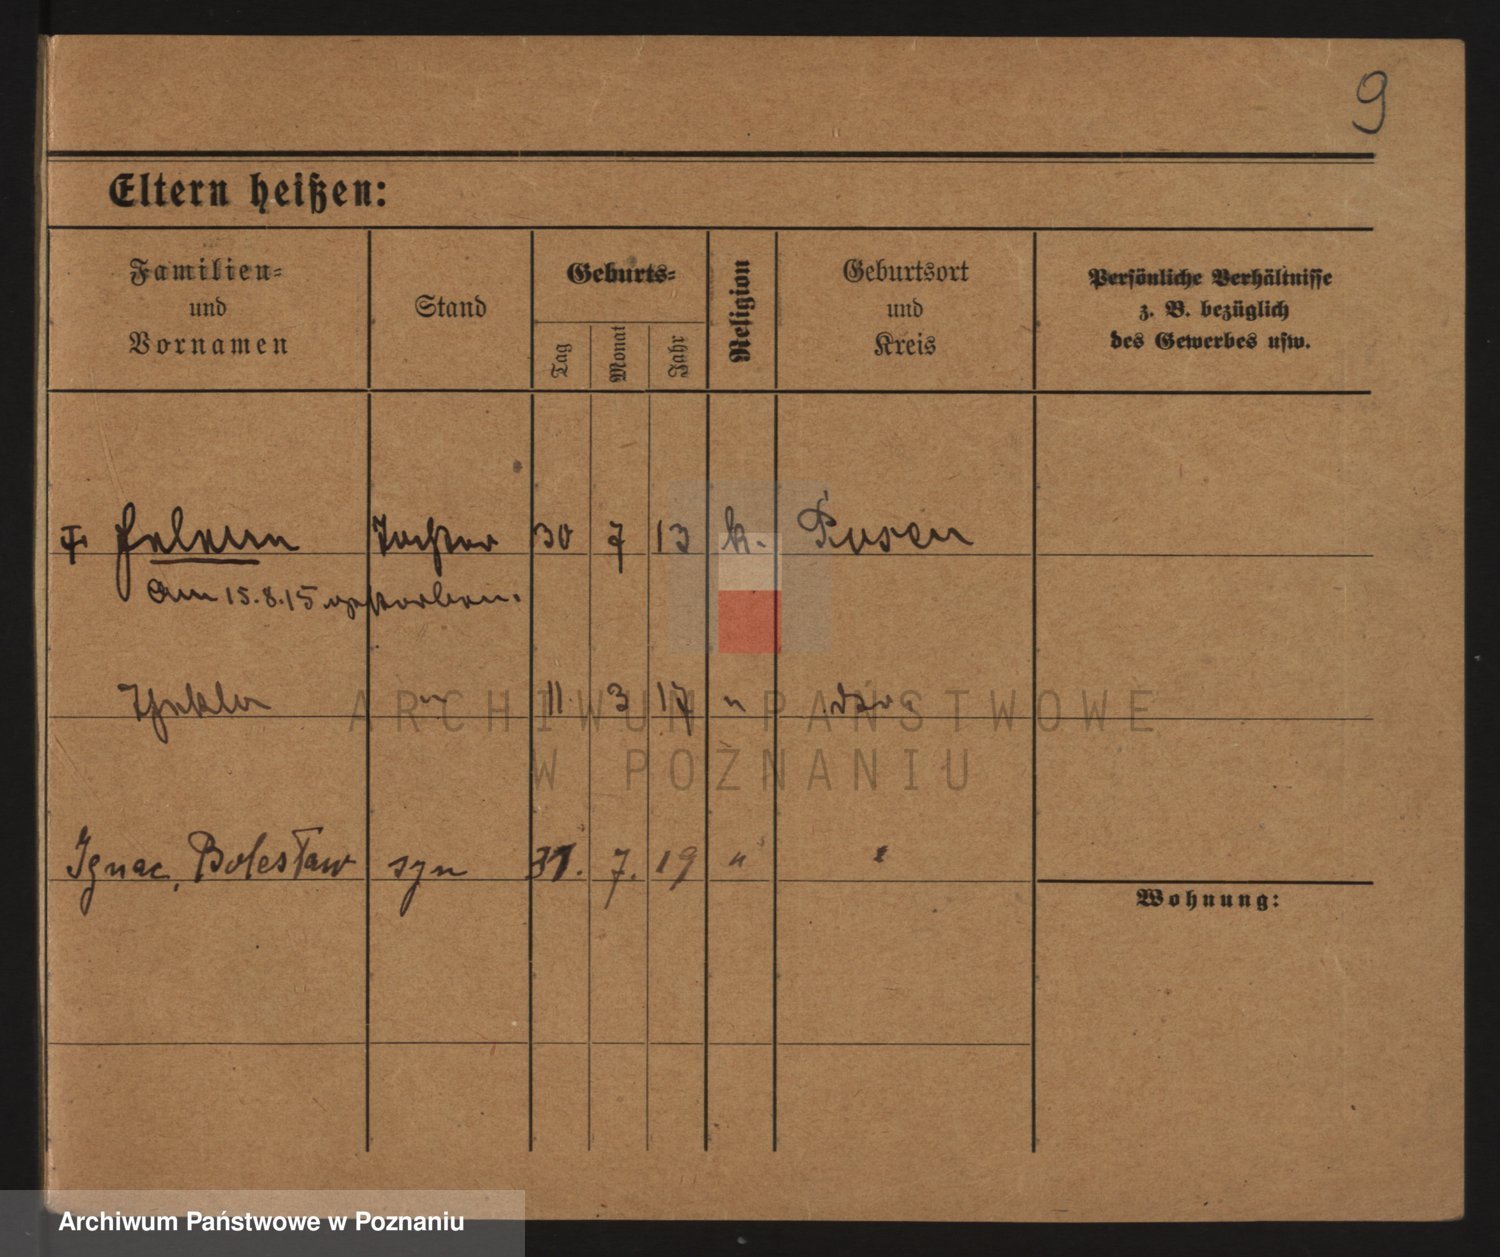 9
Eltern heißen:
Familien- und Vornamen
Stand
Geburts-
Tag
Monat
Jahr
Religion
Geburtsort und Kreis
Persönliche Verhältnisse z. B. bezüglich des Gewerbes usw.
Tochter 30 7 13 k. Posen
Am 15.8.15 gestorben.
Thekla " 11. 3 17 " dto.
Ignac, Bolesław syn 31. 7. 19 " "
Wohnung:
ARCHIWUM PAŃSTWOWE
W POZNANIU
Archiwum Państwowe w Poznaniu